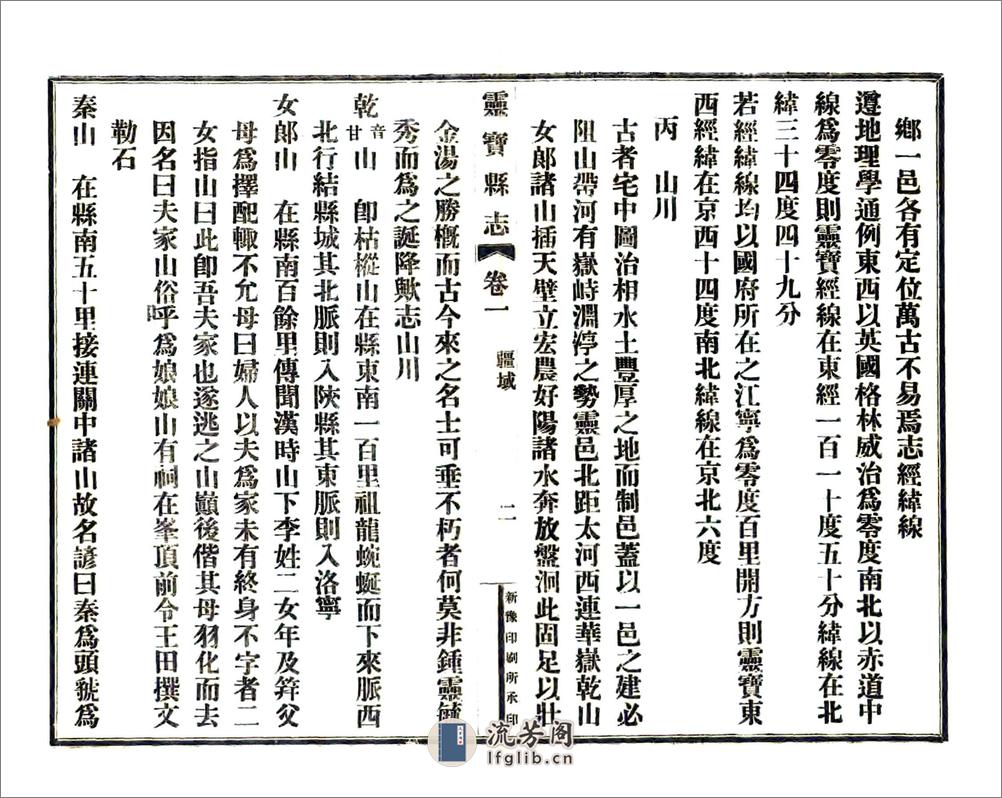 鄉一邑各有定位萬古不易焉志經緯線
遵地理學通例東西以英國格林威治為零度南北以赤道中
線為零度則靈寶經線在東經一百一十度五十分緯線在北
緯三十四度四十九分
若經緯線均以國府所在之江寧為零度百里開方則靈寶東
西經緯在京西十四度南北緯線在京北六度
丙　山川
古者宅中圖治相水土豐厚之地而制邑蓋以一邑之建必
阻山帶河有嶽峙淵渟之勢靈邑北距太河西連華嶽乾山
女郎諸山插天壁立宏農好陽諸水奔放盤洄此固足以壯
靈寶縣志　卷一　疆域　二　新豫印刷所承印
金湯之勝概而古今來之名士可垂不朽者何莫非鍾靈毓
秀而為之誕降歟志山川
乾音甘山　卽枯樅山在縣東南一百里祖龍蜿蜒而下來脈西
北行結縣城其北脈則入陝縣其東脈則入洛寧
女郎山　在縣南百餘里傳聞漢時山下李姓二女年及笄父
母為擇配輙不允母曰婦人以夫為家未有終身不字者二
女指山曰此卽吾夫家也遂逃之山巔後偕其母羽化而去
因名曰夫家山俗呼為娘娘山有祠在峯頂前令王田撰文
勒石
秦山　在縣南五十里接連關中諸山故名諺曰秦為頭虢為
流芳阁
lfglib.cn